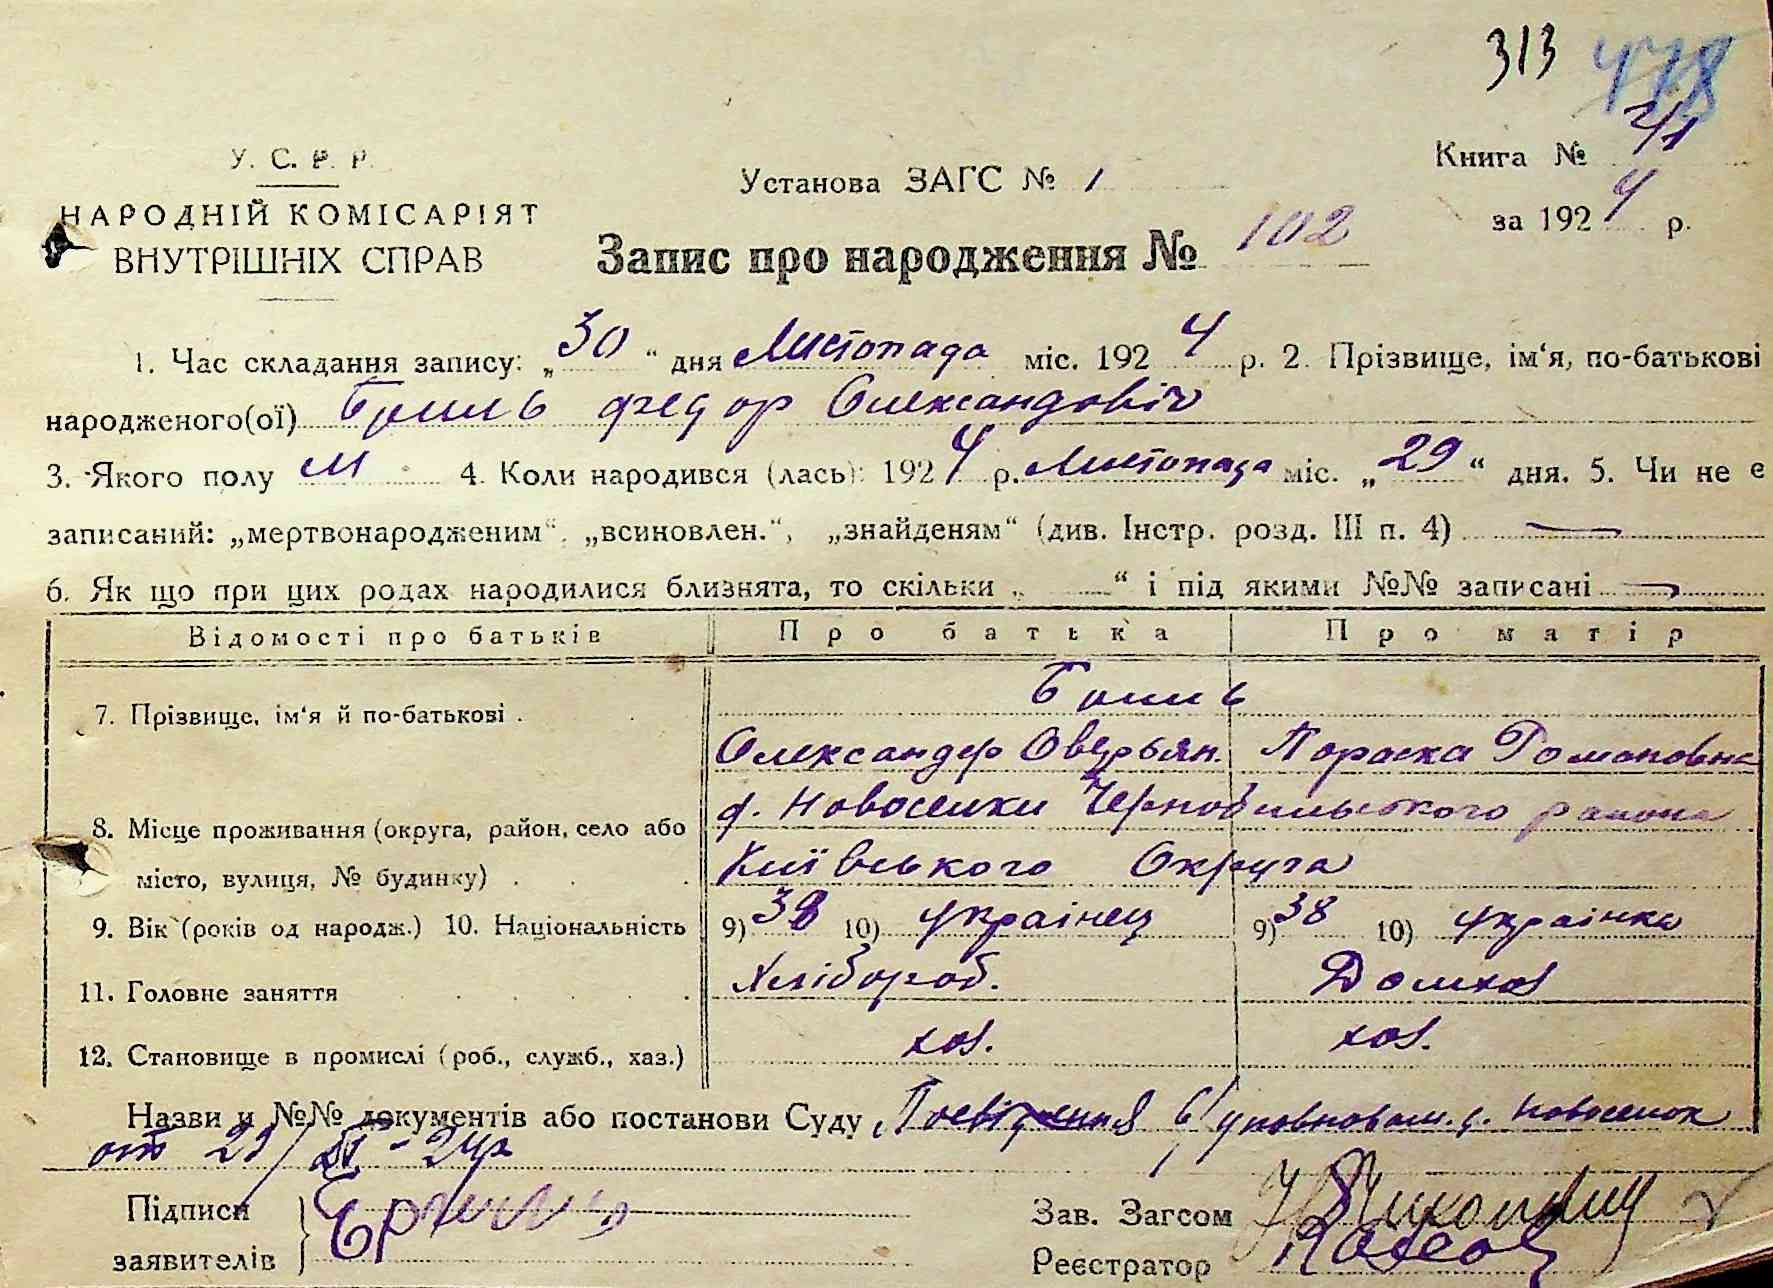 313 478
У. С. Р. Р.
Установа ЗАГС № 1
Книга № 2/1
НАРОДНІЙ КОМІСАРІЯТ
ВНУТРІШНІХ СПРАВ
за 1924 р.
Запис про народження № 102
1. Час складання запису: „30“ дня Листопада міс. 1924 р. 2. Прізвище, ім‘я, по-батькові
народженого(ої) Бриль Федор Олександовіч
3. Якого полу М 4. Коли народився (лась): 1924 р. Листопада міс. „29“ дня. 5. Чи не є
записаний: „мертвонародженим“, „всиновлен.“, „знайденям“ (див. Інстр. розд. III п. 4) —
6. Як що при цих родах народилися близнята, то скільки „ “ і під якими №№ записані —
Відомості про батьків Про батька Про матір
7. Прізвище, ім‘я й по-батькові . Бриль
Олександер Оверьян. Параска Романовна
8. Місце проживання (округа, район, село або д. Новоселки Чернобильского района
місто, вулиця, № будинку) . Київського Округа
9. Вік (років од народж.) 10. Національність 9) 38 10) українец 9) 38 10) українка
11. Головне заняття Хлібороб. Домхоз
12. Становище в промислі (роб., служб., хаз.) хоз. хоз.
Назви и №№ документів або постанови Суду Посвідчення с/уповноваж. д. Новоселок
от 29/XI-24р
Підписи
заявителів
Зав. Загсом
Реєстратор